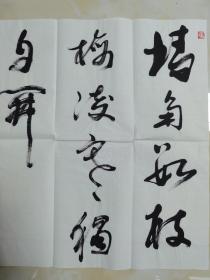 墙角数枝
梅凌寒独
自开